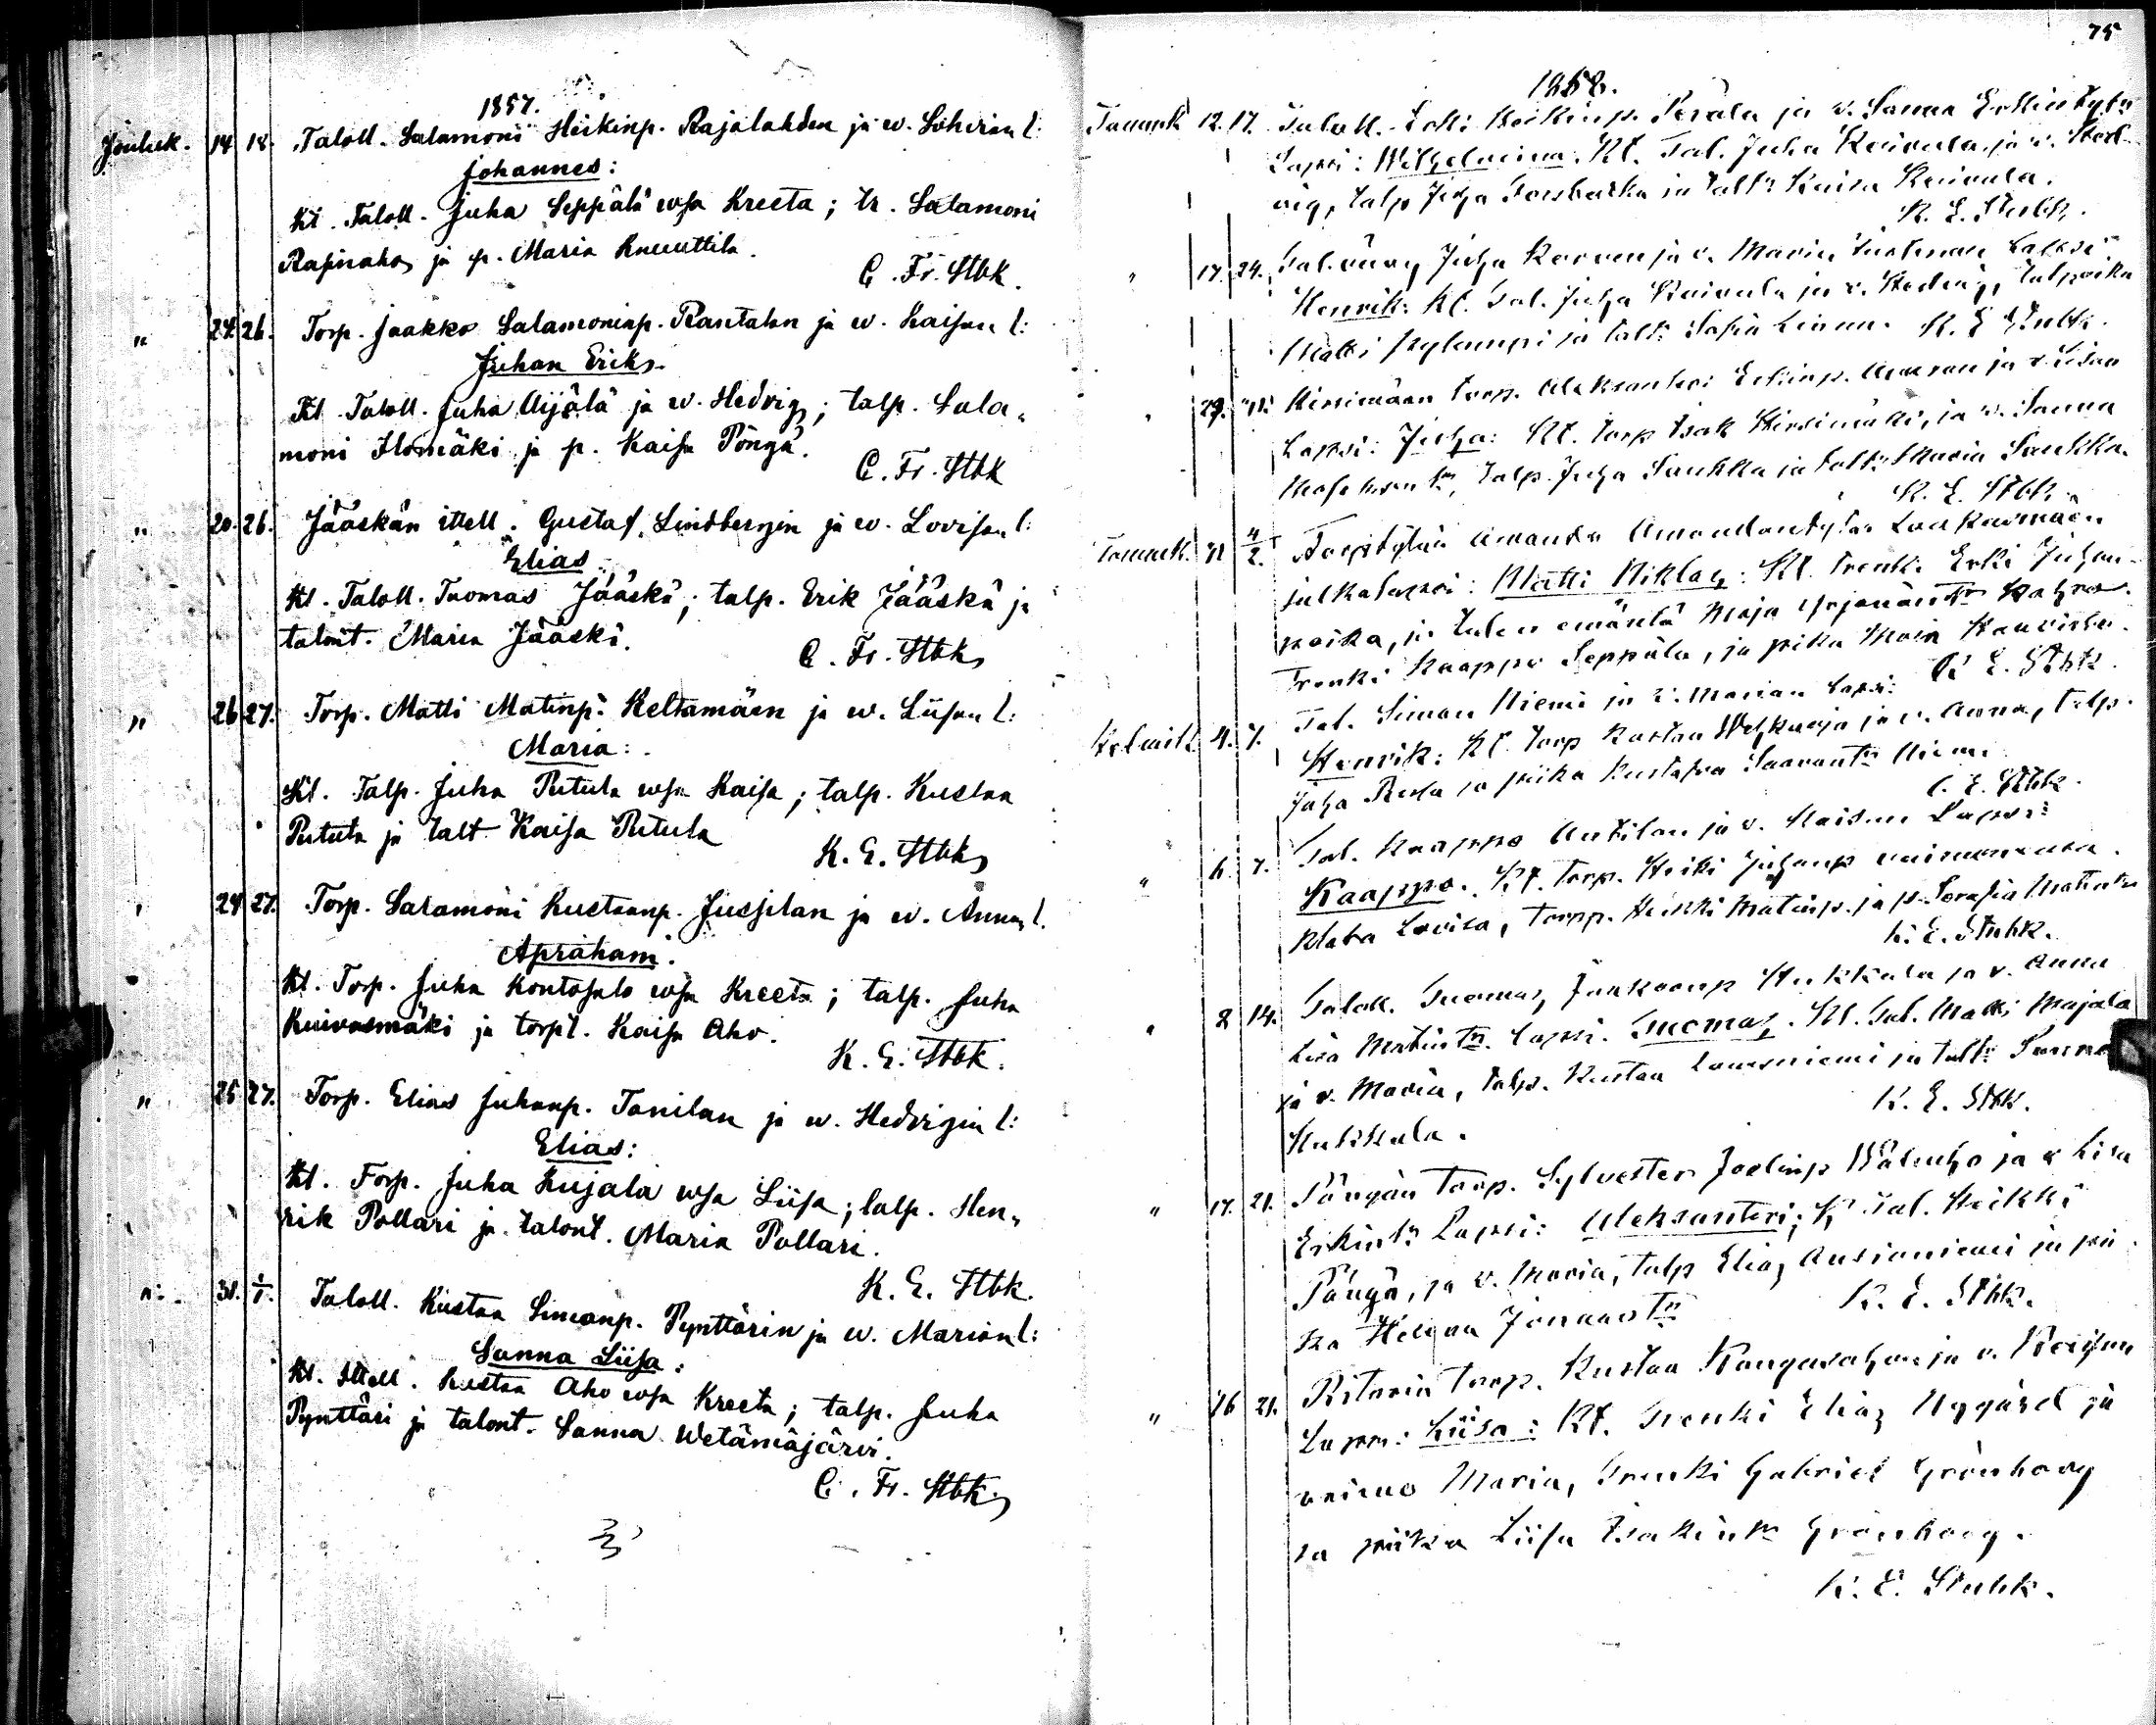 1857.
Jouluk. 14 18. Taloll. Salamoni Heikinp. Rajalahden ja w. Sohvian l:
Johannes:
Kt. Taloll. Juha Seppälä wsa Kreeta; tr. Salamoni
Rajnaho, ja p. Maria Knuuttila.
C. Fr. Stbk.
" 24. 26. Torp. Jaakko Salamoninp. Rantalan ja w. Kaisan l:
Juhan Erik.
Kt. Taloll. Juha Äijälä ja w. Hedvig; talp. Sala-
moni Ilomäki ja p. Kaisa Pöngä.
C. Fr. Stbk
" 20. 26. Jääskän ittell. Gustaf Lindbergin ja w. Lovisan l:
Elias
Kt. Taloll. Tuomas Jääskä; talp. Erik Jääskä ja
talont. Maria Jääskä.
C. Fr. Stbk
" 26 27. Torp. Matti Matinp. Keltamäen ja w. Liisan l:
Maria:
Kt. Talp. Juha Putula wsa Kaisa; talp. Kustaa
Putula ja talt. Kaisa Putula
K. E. Stbk
" 24 27. Torp. Salamoni Kustaanp. Jusjilan ja w. Annan l.
Apraham.
Kt. Torp. Juha Kontosalo wsa Kreeta; talp. Juha
Kuivasmäki ja torpt. Kaisa Aho.
K. E. Stbk.
" 25 27. Torp. Elias Juhanp. Tanilan ja w. Hedvigin l:
Elias:
Kt. Torp. Juha Kujala wsa Liisa; talp. Hen-
rik Pollari ja talont. Maria Pollari.
K. E. Stbk.
" 31. 1/1. Taloll. Kustaa Simonp. Pynttärin ja w. Marian l:
Sanna Liisa:
Kt. Ittell. Kustaa Aho wsa Kreeta; talp. Juha
Pynttäri ja talont. Sanna Wetämäjärvi.
C. Fr. Stbk
75
1858.
Tammk 12. 17. Taloll. Erkki Heikkinp. Perälä ja v. Sanna Erkkintytn
Lapsi: Wilhelmina. Kt. Tal. Juha Koivula, ja v. Hed-
vig, talp Juha Forsbacka ja talt: Kaisa Koivula.
K. E. Stubk.
" 17. 24. Juha ja v. Maria Lapsi
Henrik: Kt. Tal. Juha Koivula ja v. Hedvig, talpoika
Matti ja talt: Sofia K. E. Stubk.
" 29. Hirsimäen torp. Aleksanteri Erkinp. ja v. Liisan
Lapsi: Juha: Kt. torp Isak Hirsimäki, ja v. Sanna
talp. Juha Saukko ja talt: Maria Saukko.
K. E. Stbk.
Tammk. 31 4/2. Torptytön Amanda
Matti Niklas: Kt. trenki Erki Juhan-
poika, ja talon emäntä Maja
Trenki Kaappo Seppälä, ja piika Maia
K. E. Stbk.
Helmik. 4. 7. Tal. Simon Niemi ja v. Marian Lapsi:
Henrik: Kt. torp Kustaa ja v. Anna, talp.
Juha ja piika Kustafva Niemi
K. E. Stbk.
" 6. 7. Tal. Kaappo Anttilan ja v. Kaisan Lapsi:
Kaappo. Kt. torp. Heiki Juhanp
Lovisa, torpp. Heikki Matinp. ja p. Serafia Matintr
K. E. Stubk.
" 8 14. Taloll. Tuomas Jaakoonp Hukkala ja v. Anna
Lisa Matintr. lapsi. Tuomas. Kt. Tal. Matti Majala
ja v. Maria, talp. Kustaa Lauvniemi ja talt: Sanna
Hukkala.
K. E. Stbk.
" 17. 21. Pöngän torp. Sylvester Joelinp Wäliaho ja v Lisa
Erkintr Lapsi: Aleksanteri; Kt Tal. Heikki
Pöngä, ja v. Maria, talp Elias Ansioniemi ja pii-
ka Helena Joonaastr
K. E. Stbk.
" 16 21. torp. Kustaa Kangasahon ja v. Kaisan
Lapsi: Liisa: Kt. Trenki Elias Nygård ja
vaimo Maria, Trenki Gabriel Grönhaag
ja piika Liisa Isakintr Grönhaag.
K. E. Stubk.